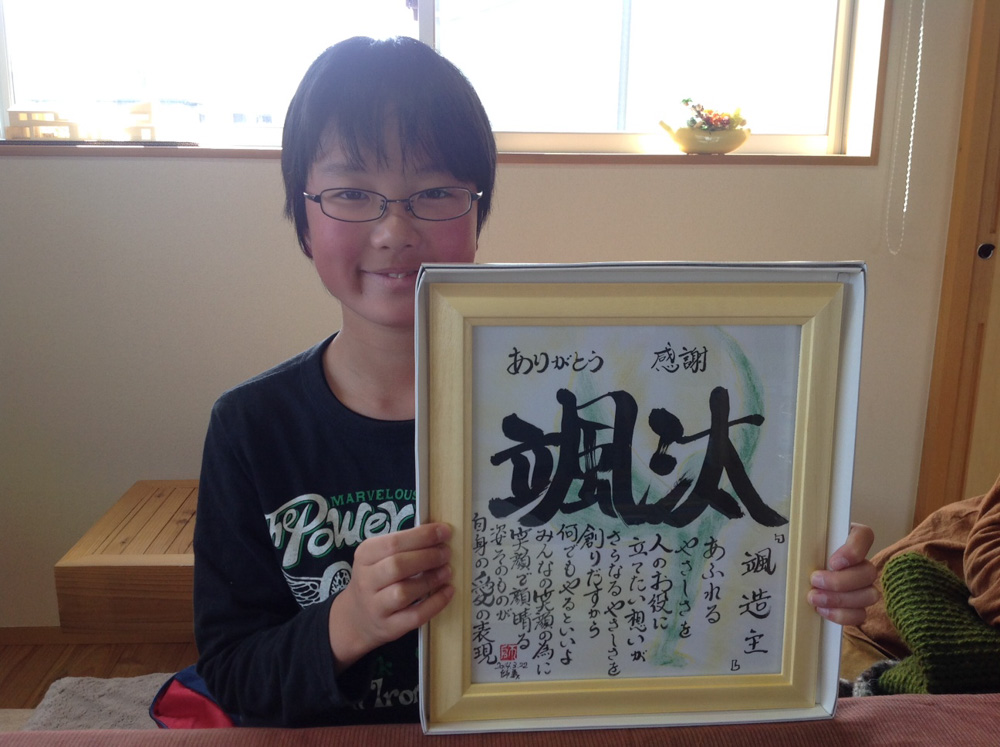 ありがとう 感謝
颯汰
「颯造主」
あふれる
やさしさを
人のお役に
立てたい想いが
さらなるやさしさを
創りだすから
何でもやるといいよ
みんなの笑顔の為に
笑顔で顔晴る
姿そのものが
自身の愛の表現
MARVELOUS
The Power
Iron